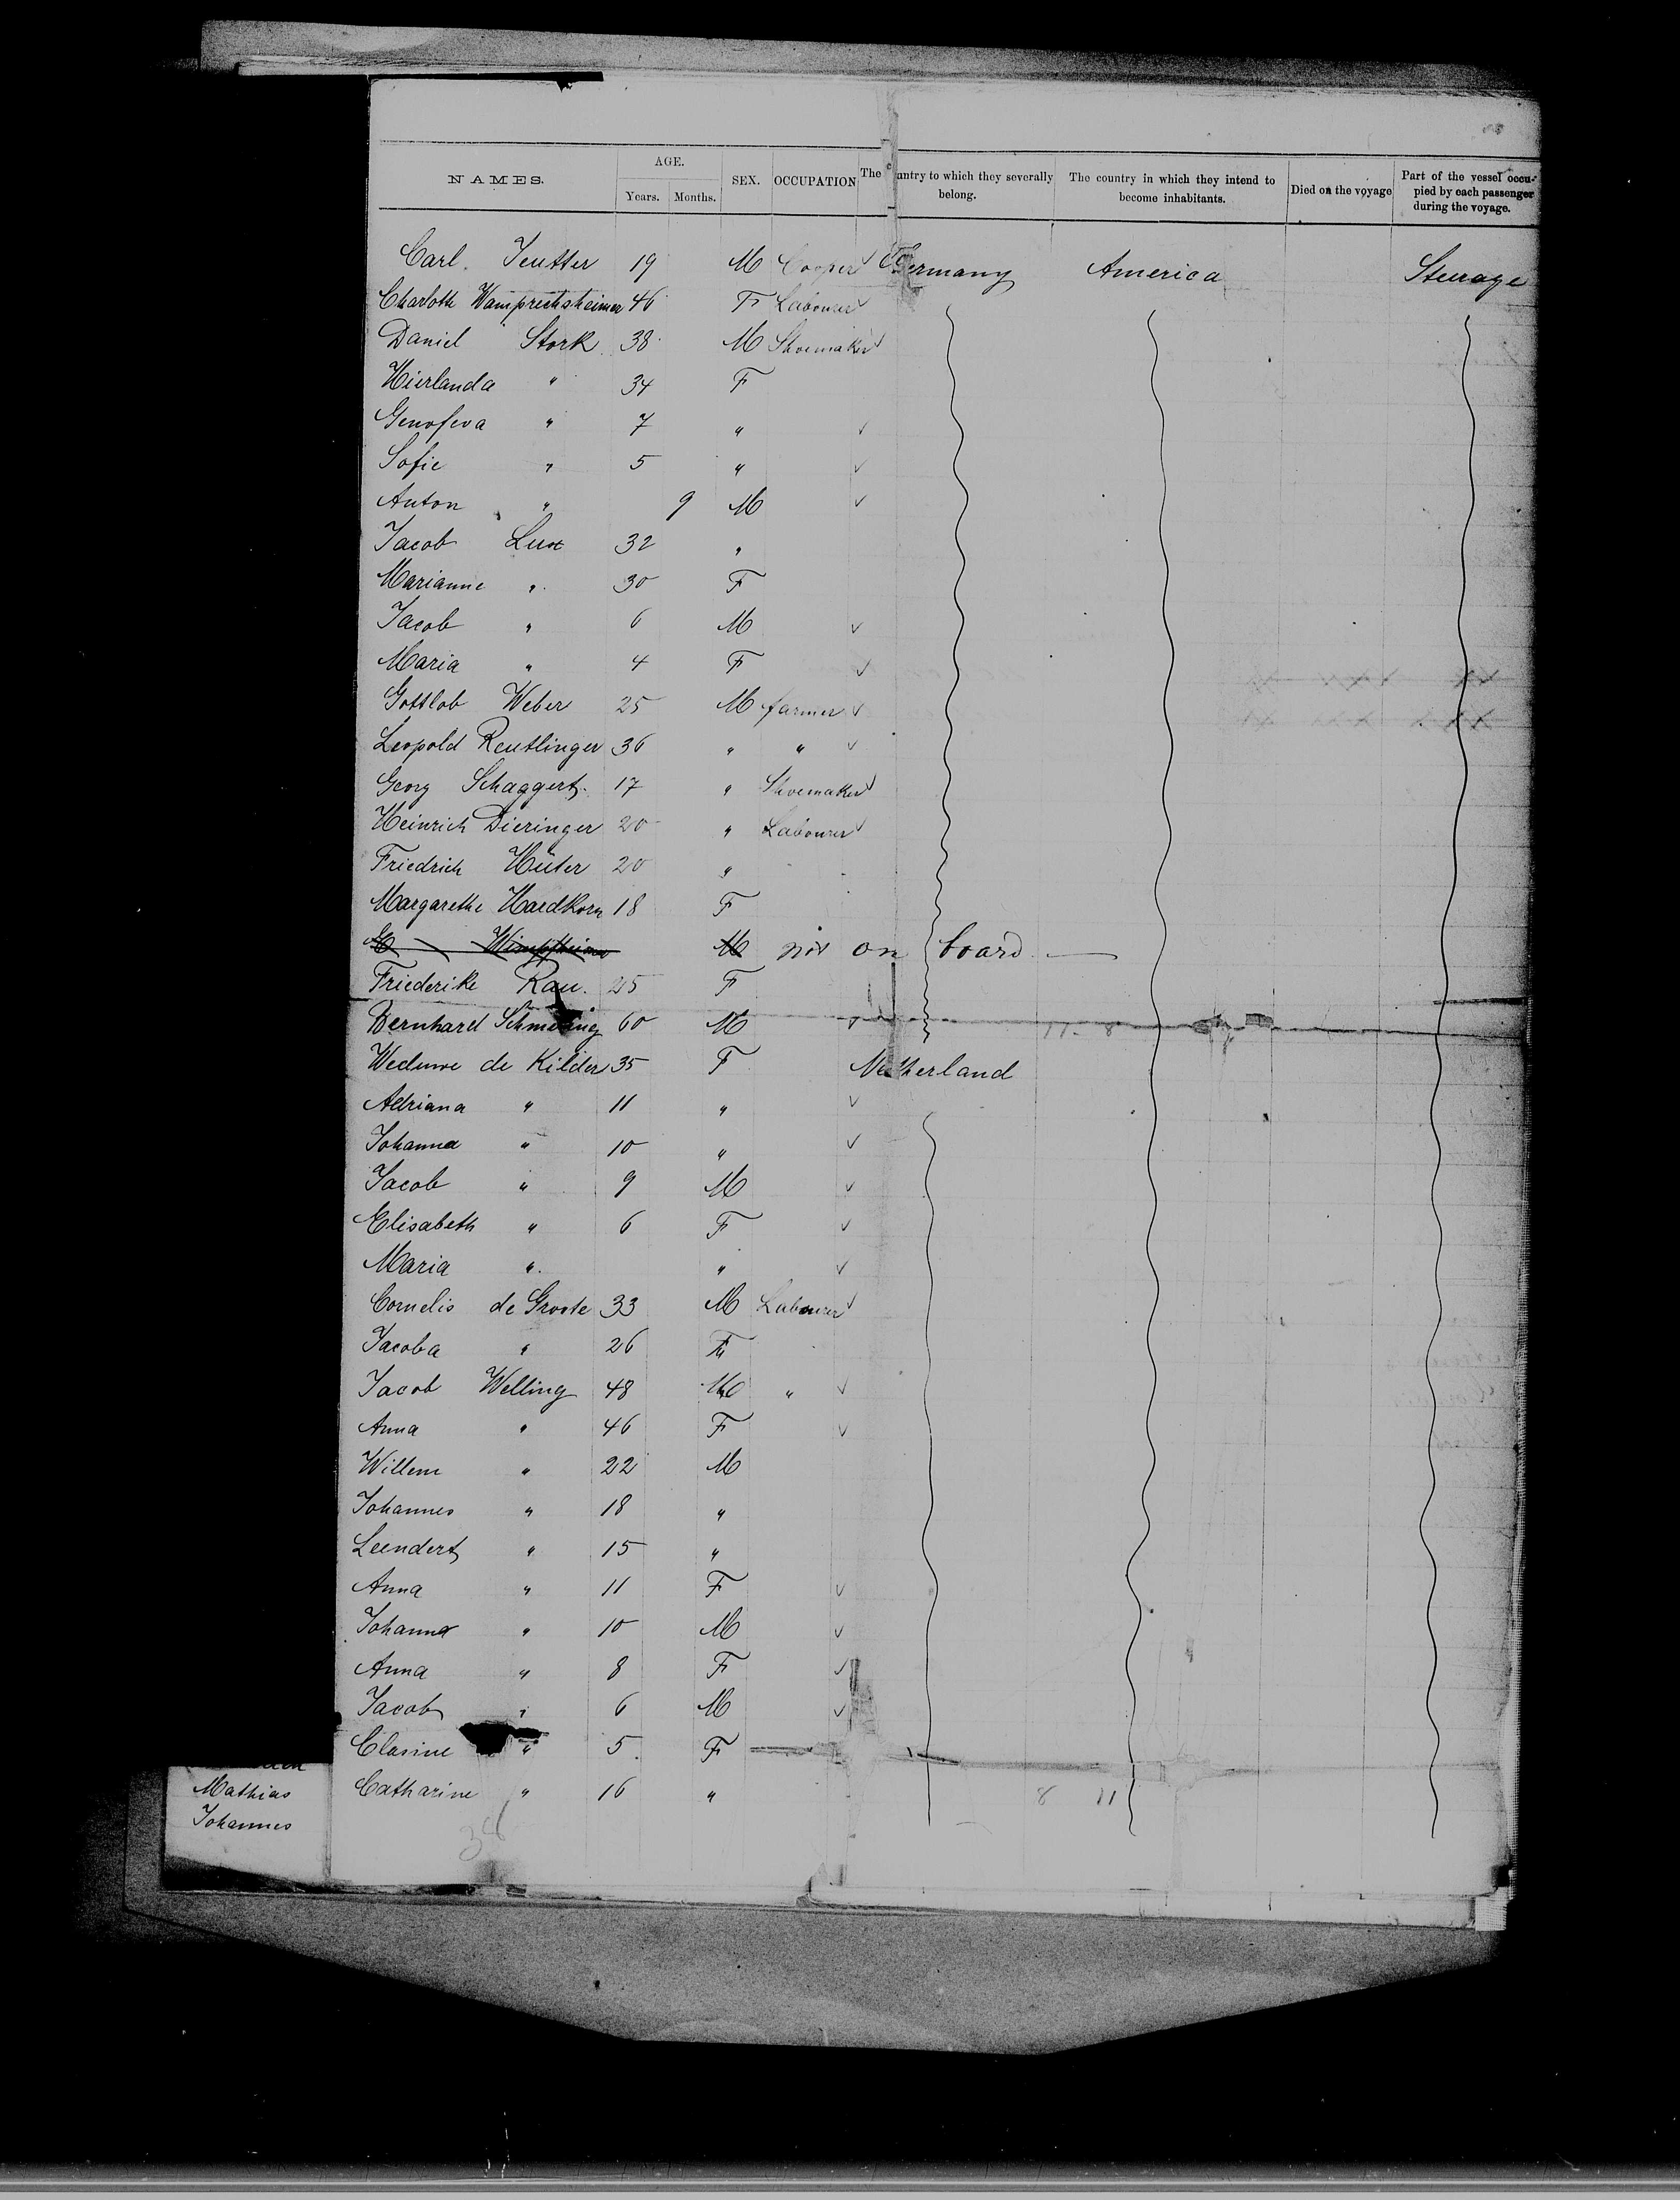 NAMES. AGE. Years. Months. SEX. OCCUPATION The country to which they severally belong. The country in which they intend to become inhabitants. Died on the voyage Part of the vessel occupied by each passenger during the voyage.
Carl Jeutter 19 M Cooper Germany America Steerage
Charlotte Wamprechtsheimer 46 F Labourer
Daniel Stork 38 M Shoemaker
Hierlanda " 34 F
Genofeva " 7 "
Sofie " 5 "
Anton " 9 M
Jacob Lux 32 "
Marianne " 30 F
Jacob " 6 M
Maria " 4 F
Gottlob Weber 25 M farmer
Leopold Reutlinger 36 " "
Georg Schaggert 17 " Shoemaker
Heinrich Dieringer 20 " Labourer
Friedrich Hüter 20 "
Margarethe Hardkorn 18 F
M not on board
Friederike Rau 25 F
Bernhard 60 M
Weduwe de Kilder 35 F Netherland
Adriana " 11 "
Johanna " 10 "
Jacob " 9 M
Elisabeth " 6 F
Maria " "
Cornelis de Groote 33 M Labourer
Jacoba " 26 F
Jacob Welling 48 M "
Anna " 46 F
Willem " 22 M
Johannes " 18 "
Leendert " 15 "
Anna " 11 F
Johanna " 10 M
Anna " 8 F
Jacob " 6 M
Clasine " 5 F
Catharine " 16 " 8 11
Mathias
Johannes
38